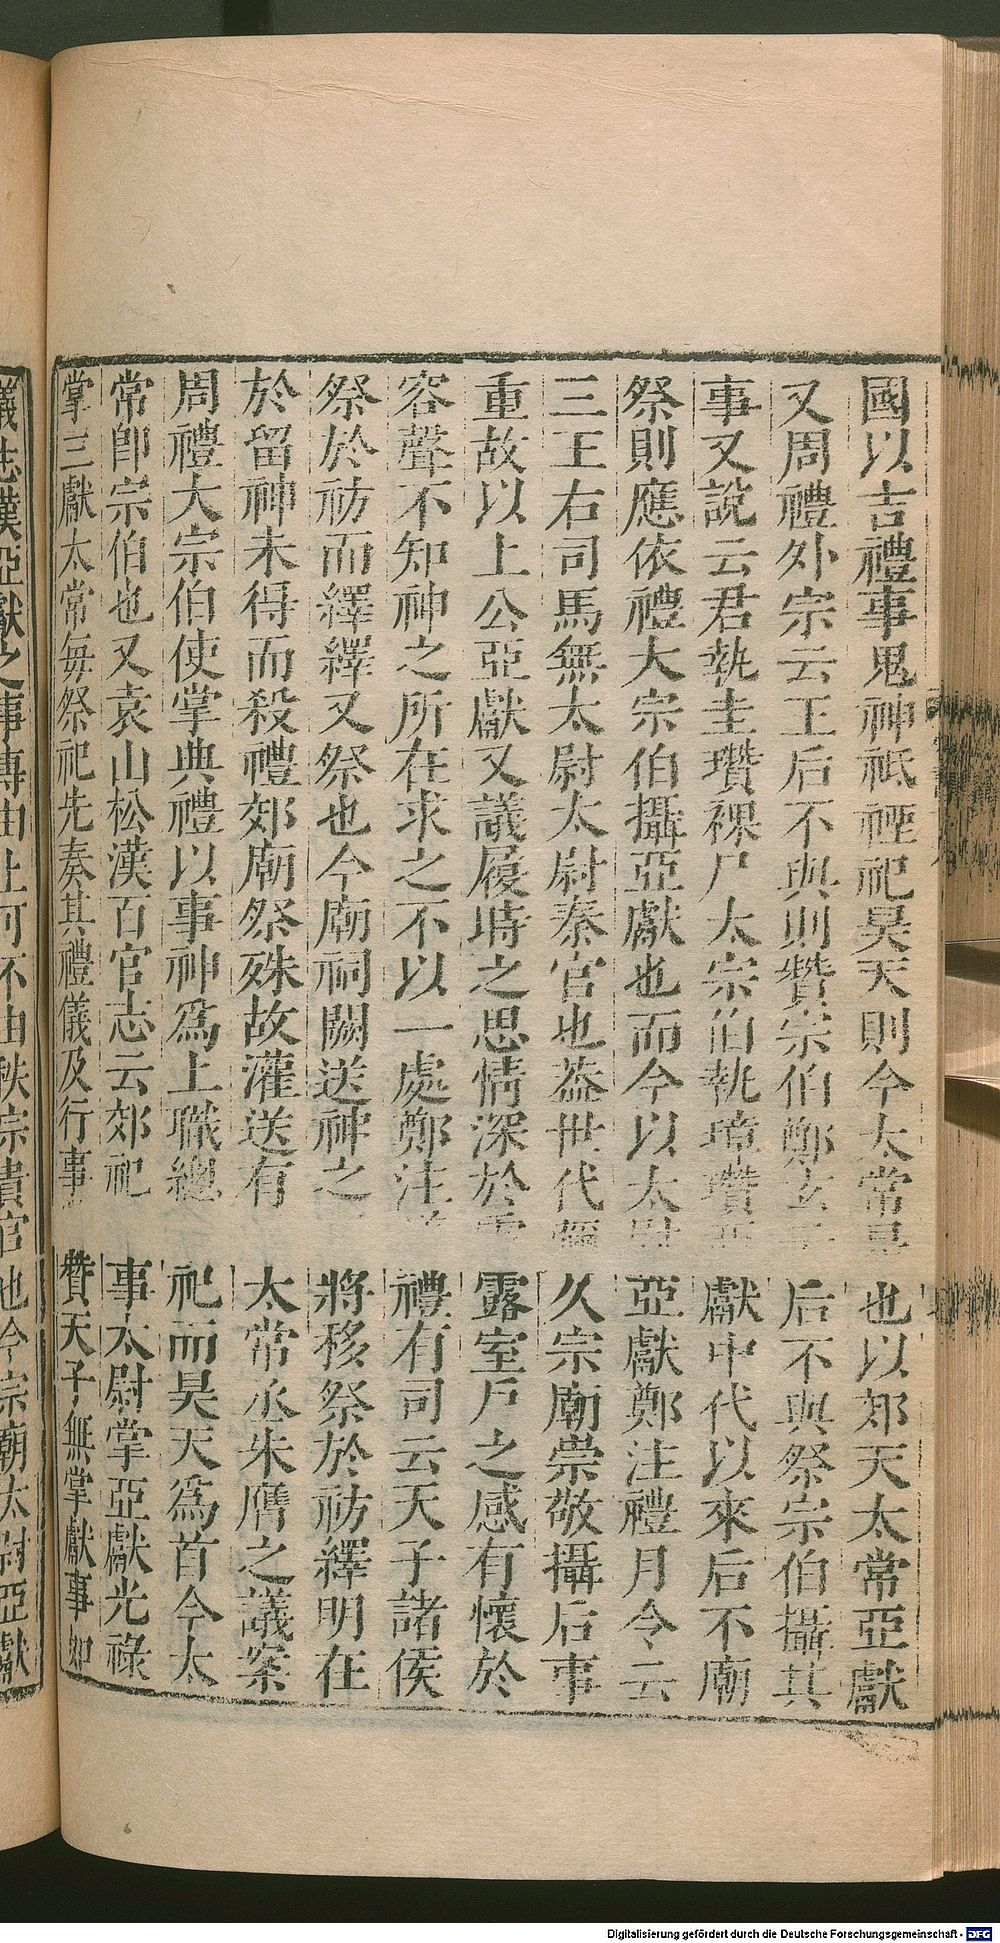 國以吉禮事鬼神祗禋祀昊天則今太常是也以郊天太常亞獻
又周禮外宗云王后不與則贊宗伯鄭玄云后不與祭宗伯攝其
事又說云君執圭瓚裸尸太宗伯執璋瓚亞獻中代以來后不廟
祭則應依禮大宗伯攝亞獻也而今以太尉亞獻鄭注禮月令云
三王右司馬無太尉太尉秦官也葢世代彌久宗廟崇敬攝后事
重故以上公亞獻又議履時之思情深於霜露室戶之感有懷於
容聲不知神之所在求之不以一處鄭注禮有司云天子諸侯
祭於祊而繹繹又祭也今廟祠闕送神之將移祭於祊繹明在
於留神未得而殺禮郊廟祭殊故灌送有太常丞朱膺之議案
周禮大宗伯使掌典禮以事神爲上職總祀而昊天爲首今太
常卽宗伯也又袁山松漢百官志云郊祀事太尉掌亞獻光祿
掌三獻太常每祭祀先奏其禮儀及行事贊天子無掌獻事如
儀志漢亞獻之事專由上可不由秩宗貴官也今宗廟太尉亞獻
Digitalisierung gefördert durch die Deutsche Forschungsgemeinschaft - DFG